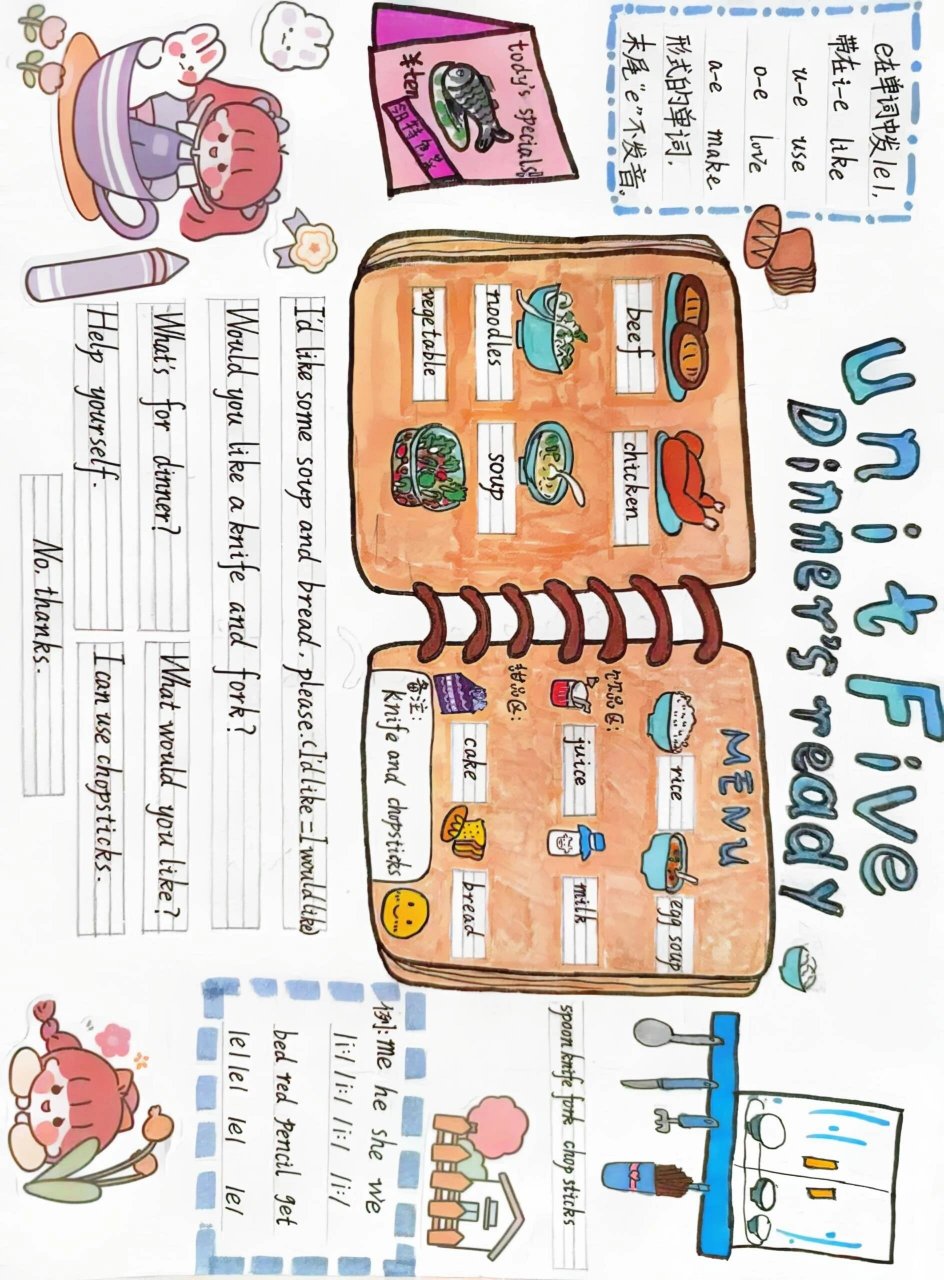 Unit Five
Dinner's ready
e在单词中发/e/,
带在i-e like
u-e use
o-e love
a-e make
形式的单词,
末尾"e"不发音.
tody's special!
羊ten
beef
chicken
noodles
soup
vegetable
MENU
rice
egg soup
饮品区:
juice
milk
甜品区:
cake
bread
备注:
knife and chopsticks
spoon knife fork chopsticks
例:me he she we
/i:/ /i:/ /i:/ /i:/
bed red pencil get
/e/ /e/ /e/ /e/
I'd like some soup and bread, please. (I'd like = I would like)
Would you like a knife and fork?
What's for dinner?
What would you like?
Help yourself.
I can use chopsticks.
No, thanks.